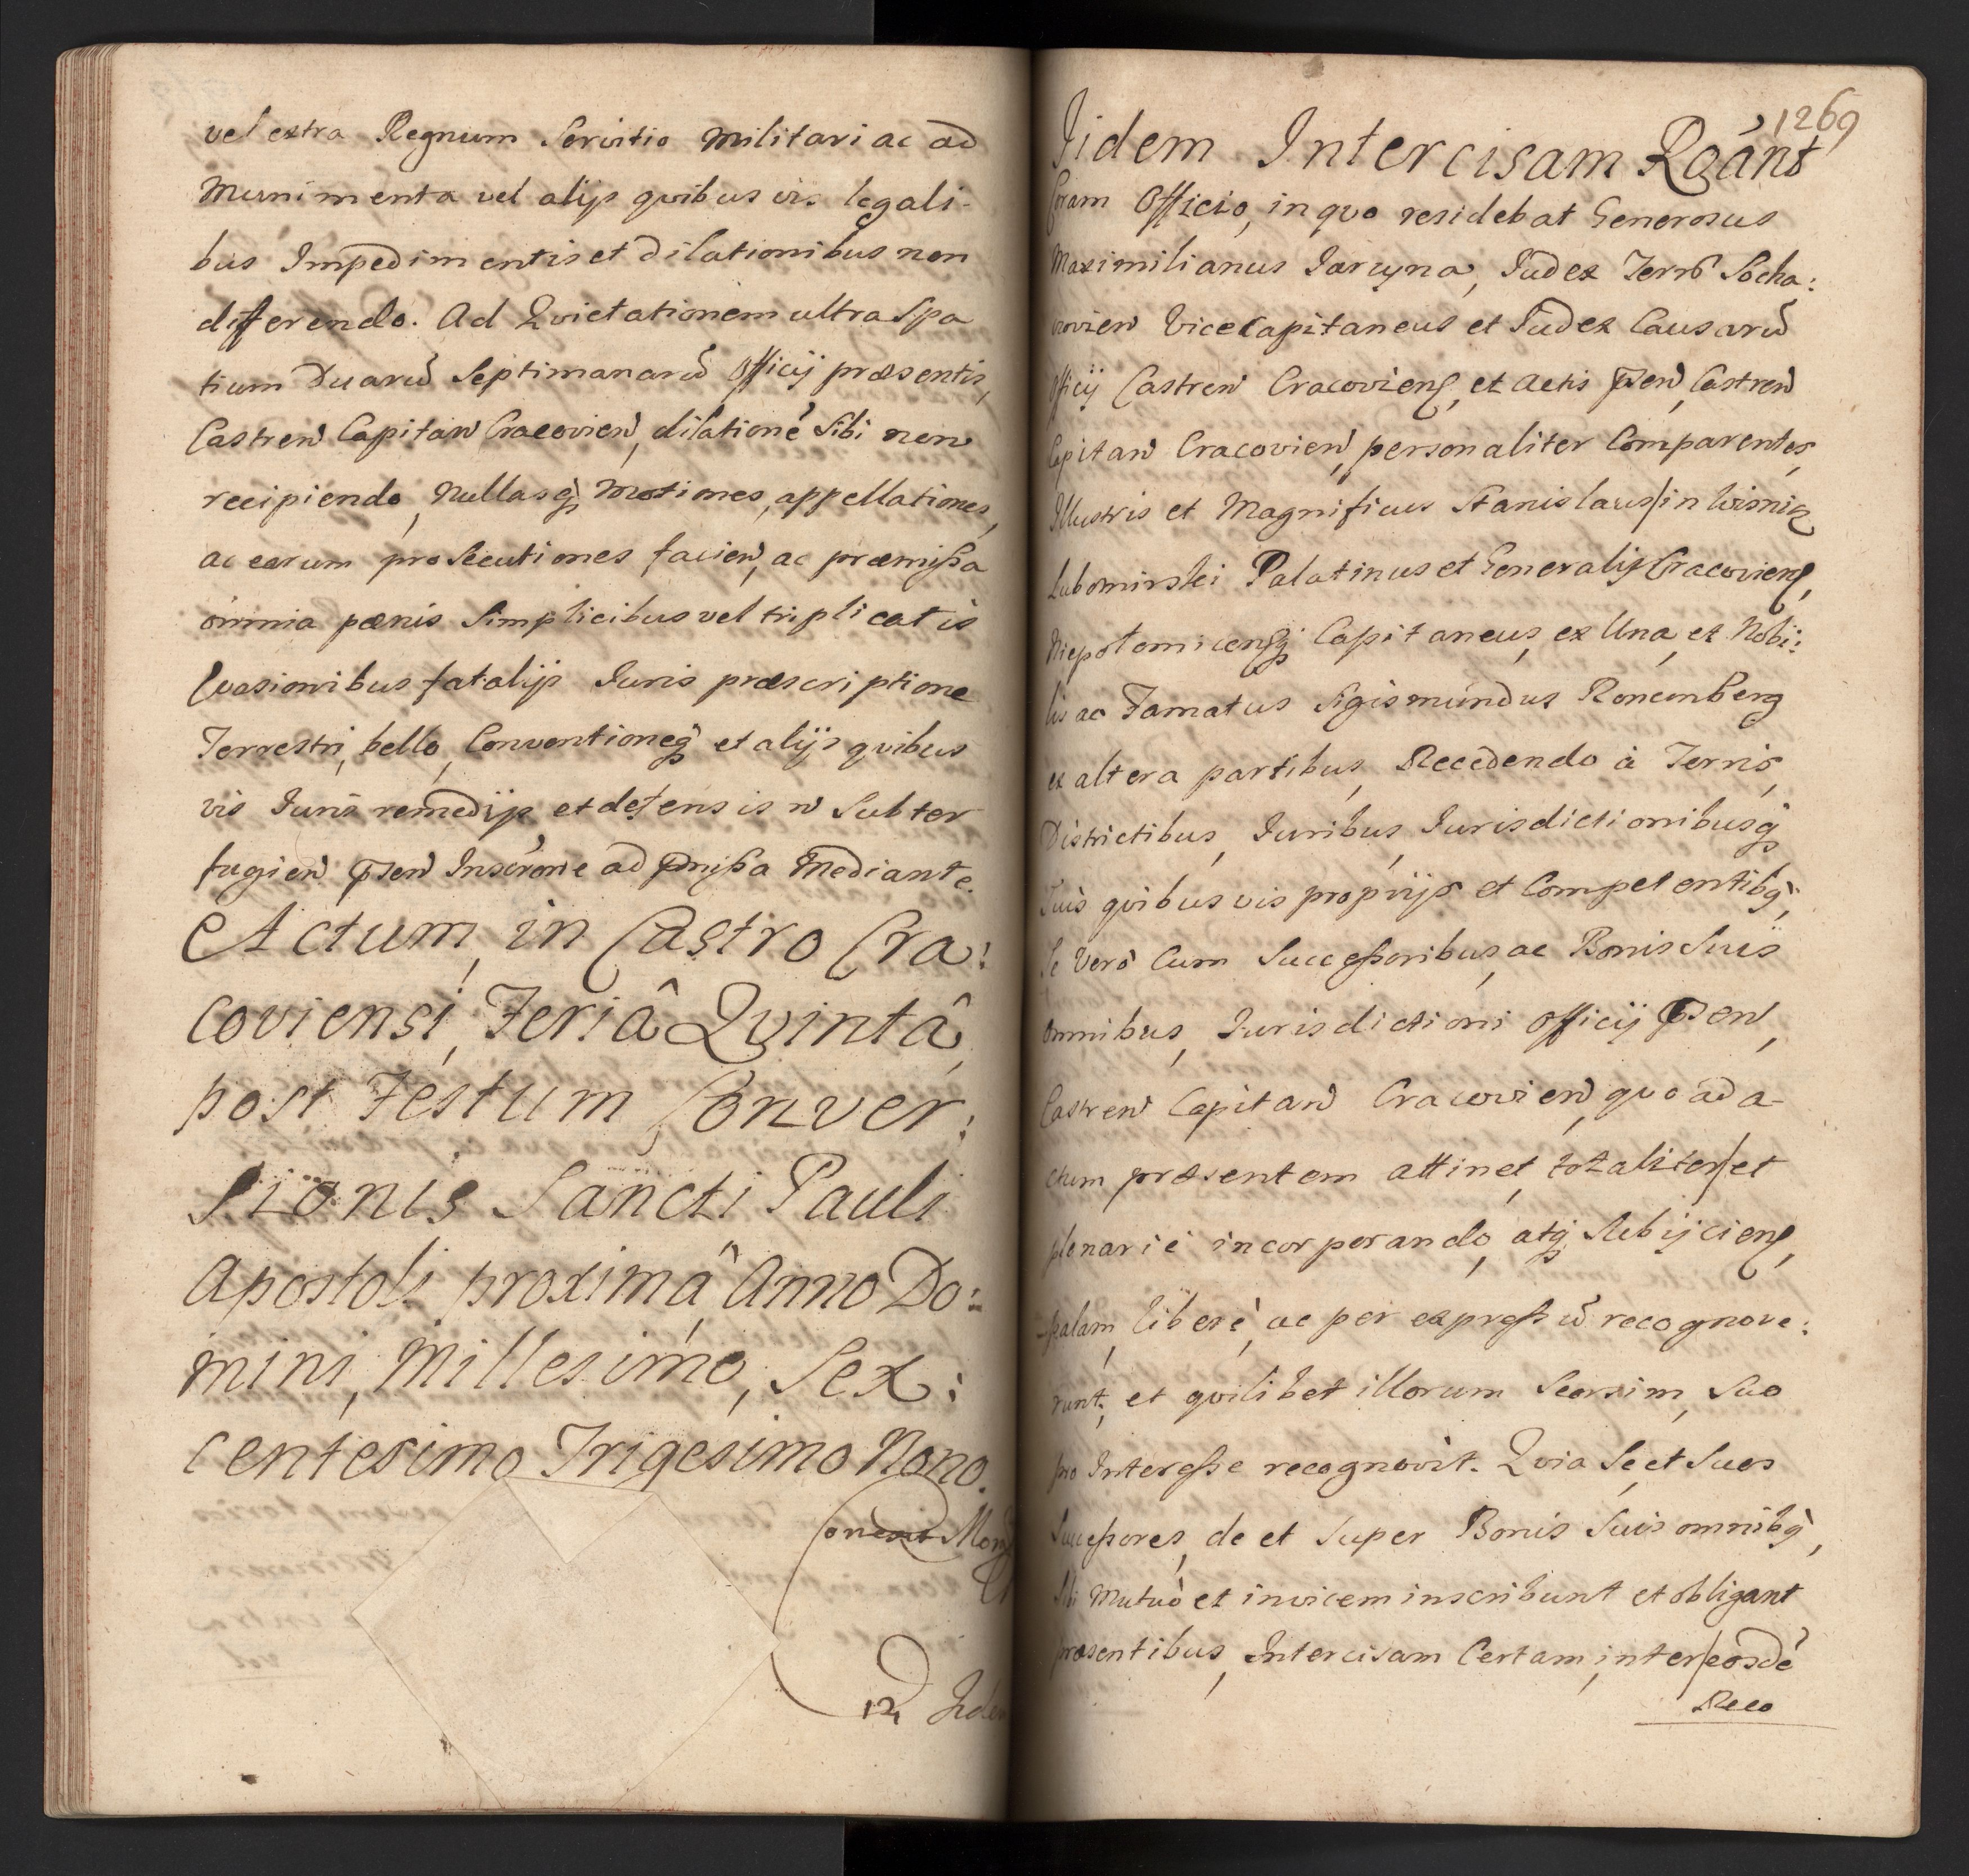 vel extra Regnum Servitio Militari ac ad
Munimenta vel alijs quibus vis legali-
bus Impedimentis et dilationibus non
differendo. Ad Quietationem ultra Spa
tium Duarũ Septimanarũ Officij præsentis,
Castren Capitan Cracovien, dilationẽ Sibi non
recipiendo, Nullasq; Motiones, appellationes,
ac earum proSecutiones facien, ac præmißa
omnia pœnis Simplicibus vel triplicatis
Evasionibus fatalijs Juris præscriptione
Terrestri, bello, Conventioneq; et alijs quibus
vis Juris remedijs et defensis n Subter
fugien Pñen Inscrone ad Pmißa Mediante.
Actum in Castro Cra:
coviensi, Feriâ Quintâ,
post Festum Conver:
sionis Sancti Pauli
Apostoli proximâ Anno Do:
mini, Millesimo, Sex:
centesimo Trigesimo Nono.
1269
Jidem Intercisam Rgánt
Coram Officio, in quo residebat Generosus
Maximilianus Jarcyna, Judex Terrs Socha:
czovien Vicecapitaneus et Judex Causarũ
Officij Castren Cracoviens, et Actis Pñen, Castren
Capitan Cracovien, personaliter Comparentes,
Illustris et Magnificus Stanislaus in Wisnicz
Lubomirski Palatinus et Generalis Cracoviens,
Niepołomicensq; Capitaneus, ex Una, et Nobi:
lis ac Famatus Sigismundus Ronemberg
ex altera partibus, Recedendo à Terris,
Districtibus, Juribus, Jurisdictionibusq;
Suis quibusvis proprijs et Competentibq;,
Se Verò Cum Succeßoribus, ac Bonis Suis
omnibus, Jurisdictioni Officij Pñen,
Castren Capitan Cracovien, quo ad a-
ctum præsentem attinet, totaliter et
plenariè incorporando, atq; Subijciens,
palam, liberè, ac per expreßũ recognove:
runt, et quilibet illorum Seorsim, Suo
pro Intereße recognovit. Quia Se et Suos
Succeßores, de et Super Bonis Suis omnibq;,
Sibi Mutuò et invicem inscribunt et obligant
præsentibus, Intercisam Certam, inter eosdẽ
Reco